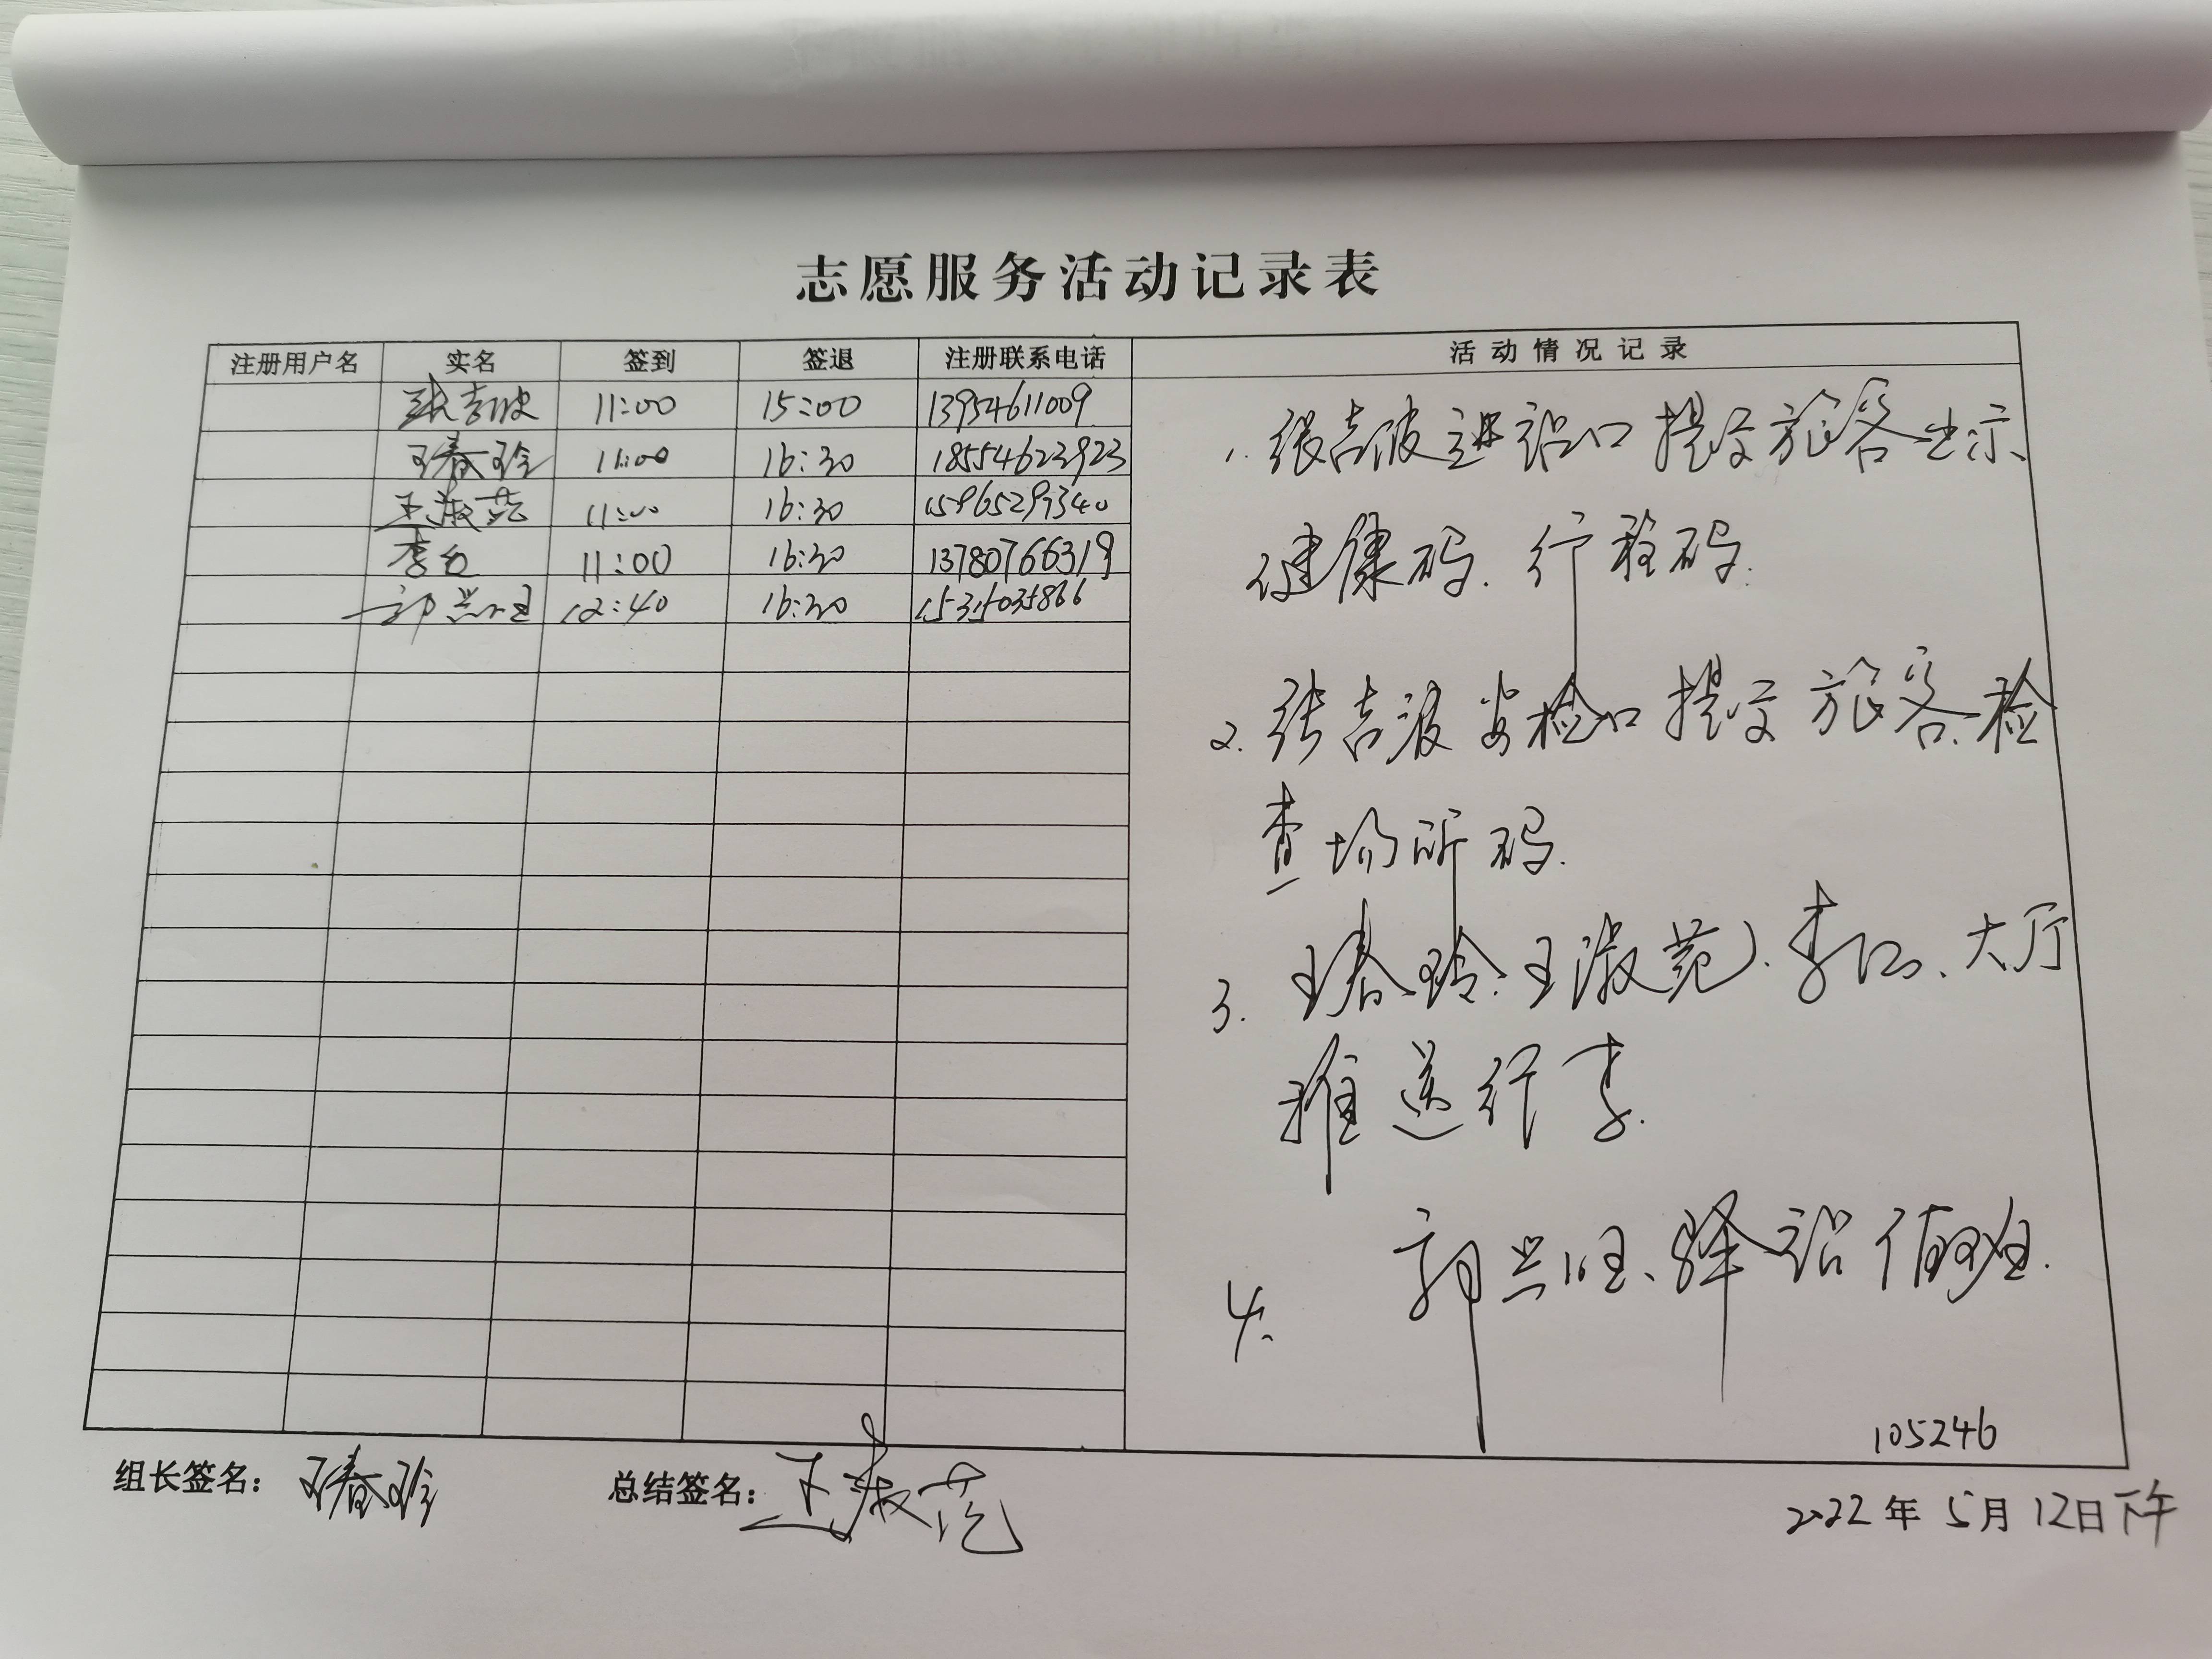 志愿服务活动记录表
注册用户名 实名 签到 签退 注册联系电话 活动情况记录
张吉波 11:00 15:00 13954611009
王春玲 11:00 16:30 18554623923
王淑苑 11:00 16:30 15965299340
李红 11:00 16:30 13780766319
郭兴旺 12:40 16:30 15315035866
1. 张吉波进站口提夜旅客出示
健康码、行程码.
2. 张吉波安检口提夜旅客、检
查场所码.
3. 王春玲、王淑苑、李红、大厅
推送行李.
4. 郭兴旺、驿站值班.
105246
组长签名: 王春玲 总结签名: 王淑苑
2022年5月12日下午